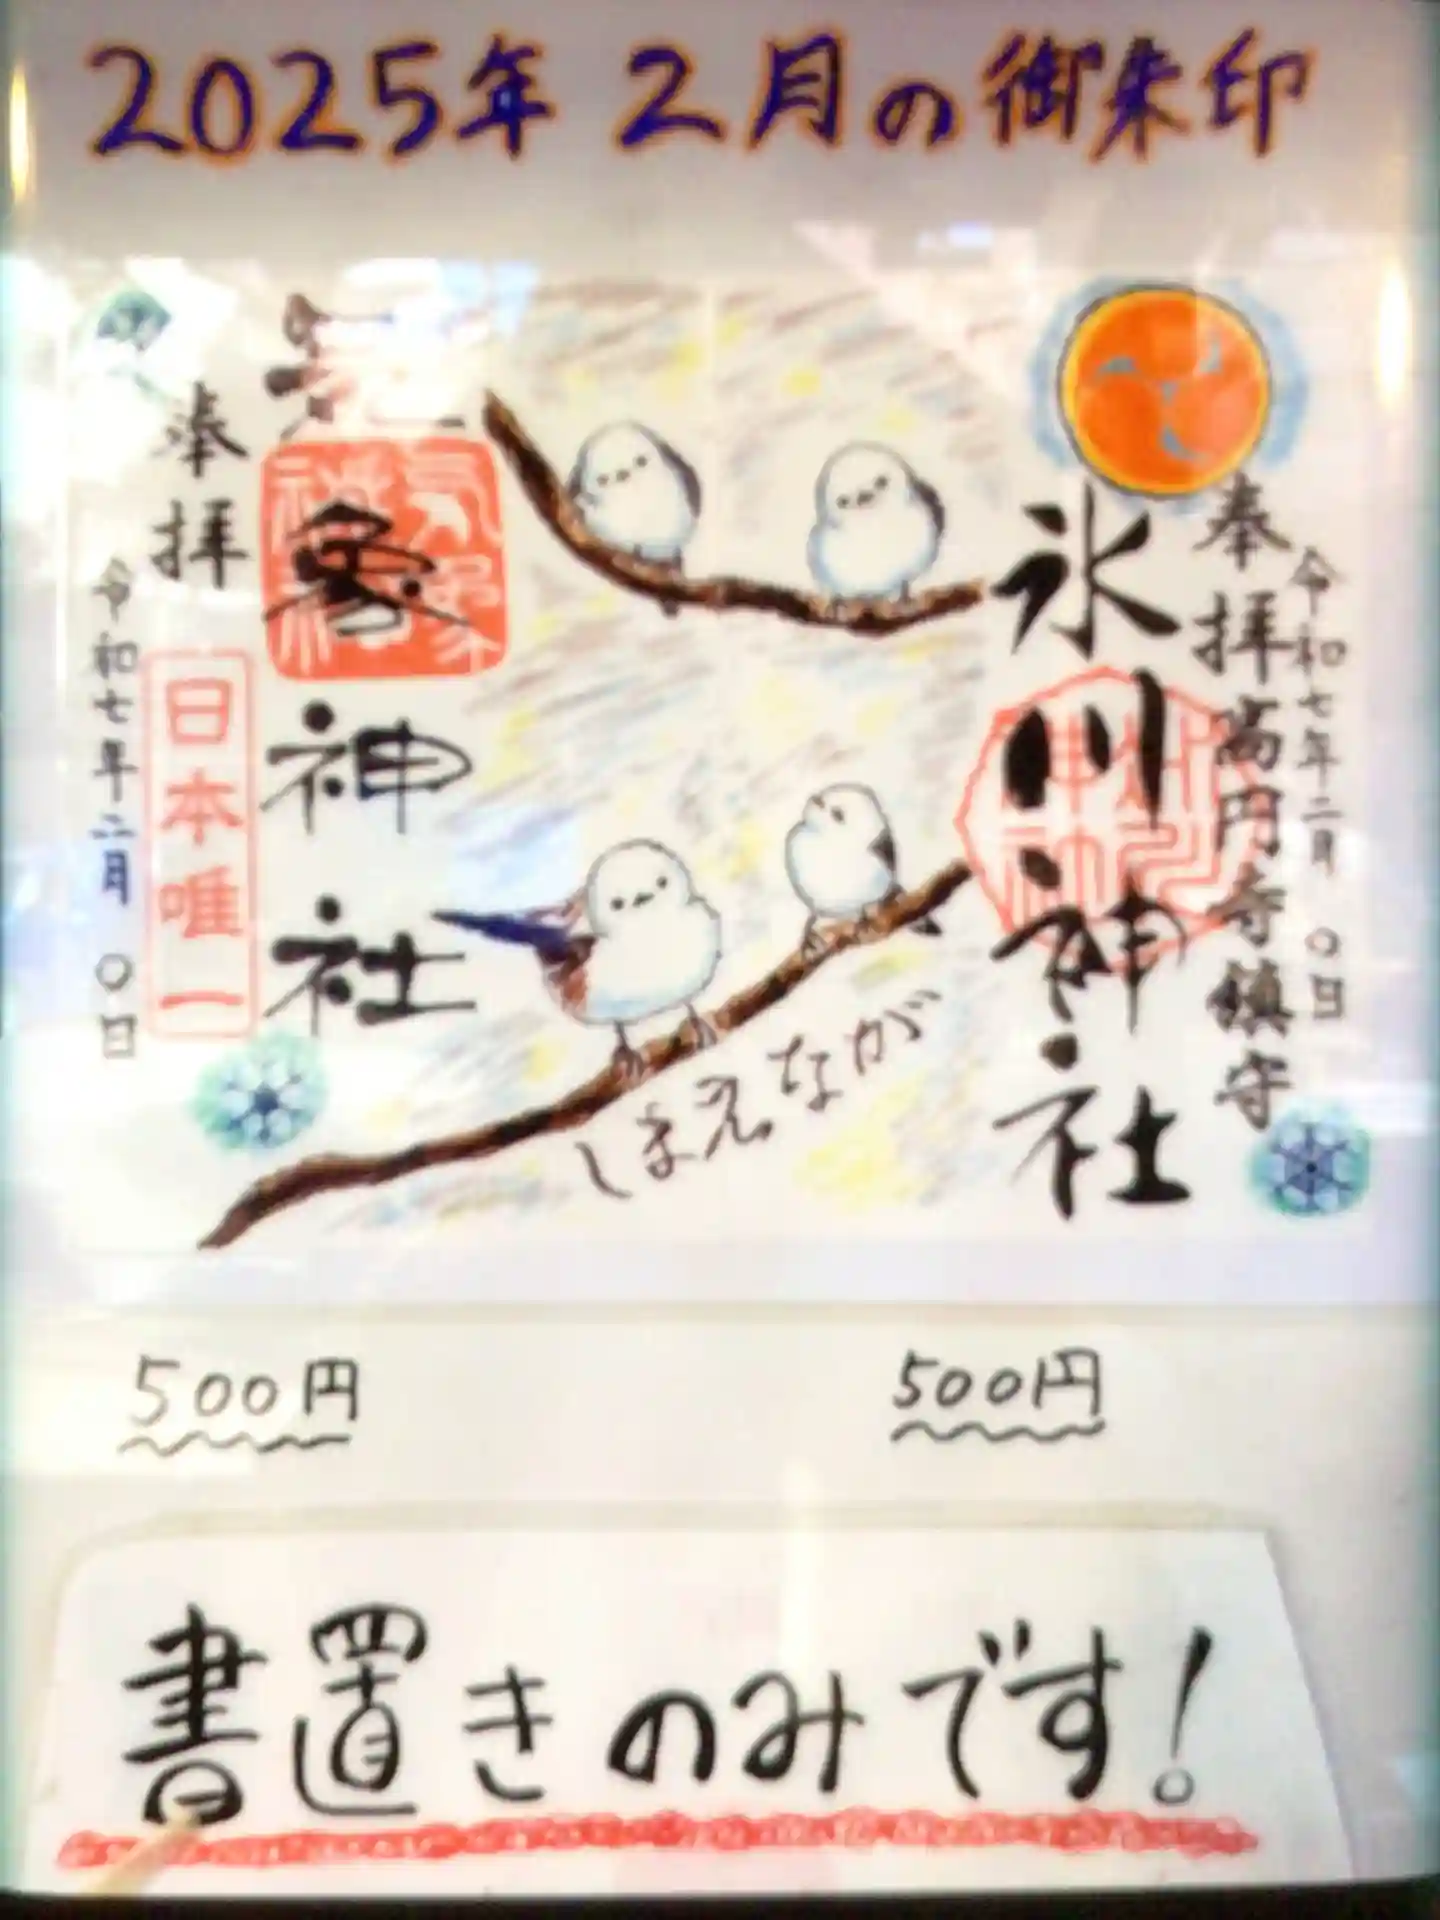 2025年 2月の御朱印
奉拝
令和七年二月 〇日
高円寺鎮守
氷川神社
しまえなが
気象神社
奉拝
日本唯一
令和七年二月 〇日
500円
500円
書置きのみです!